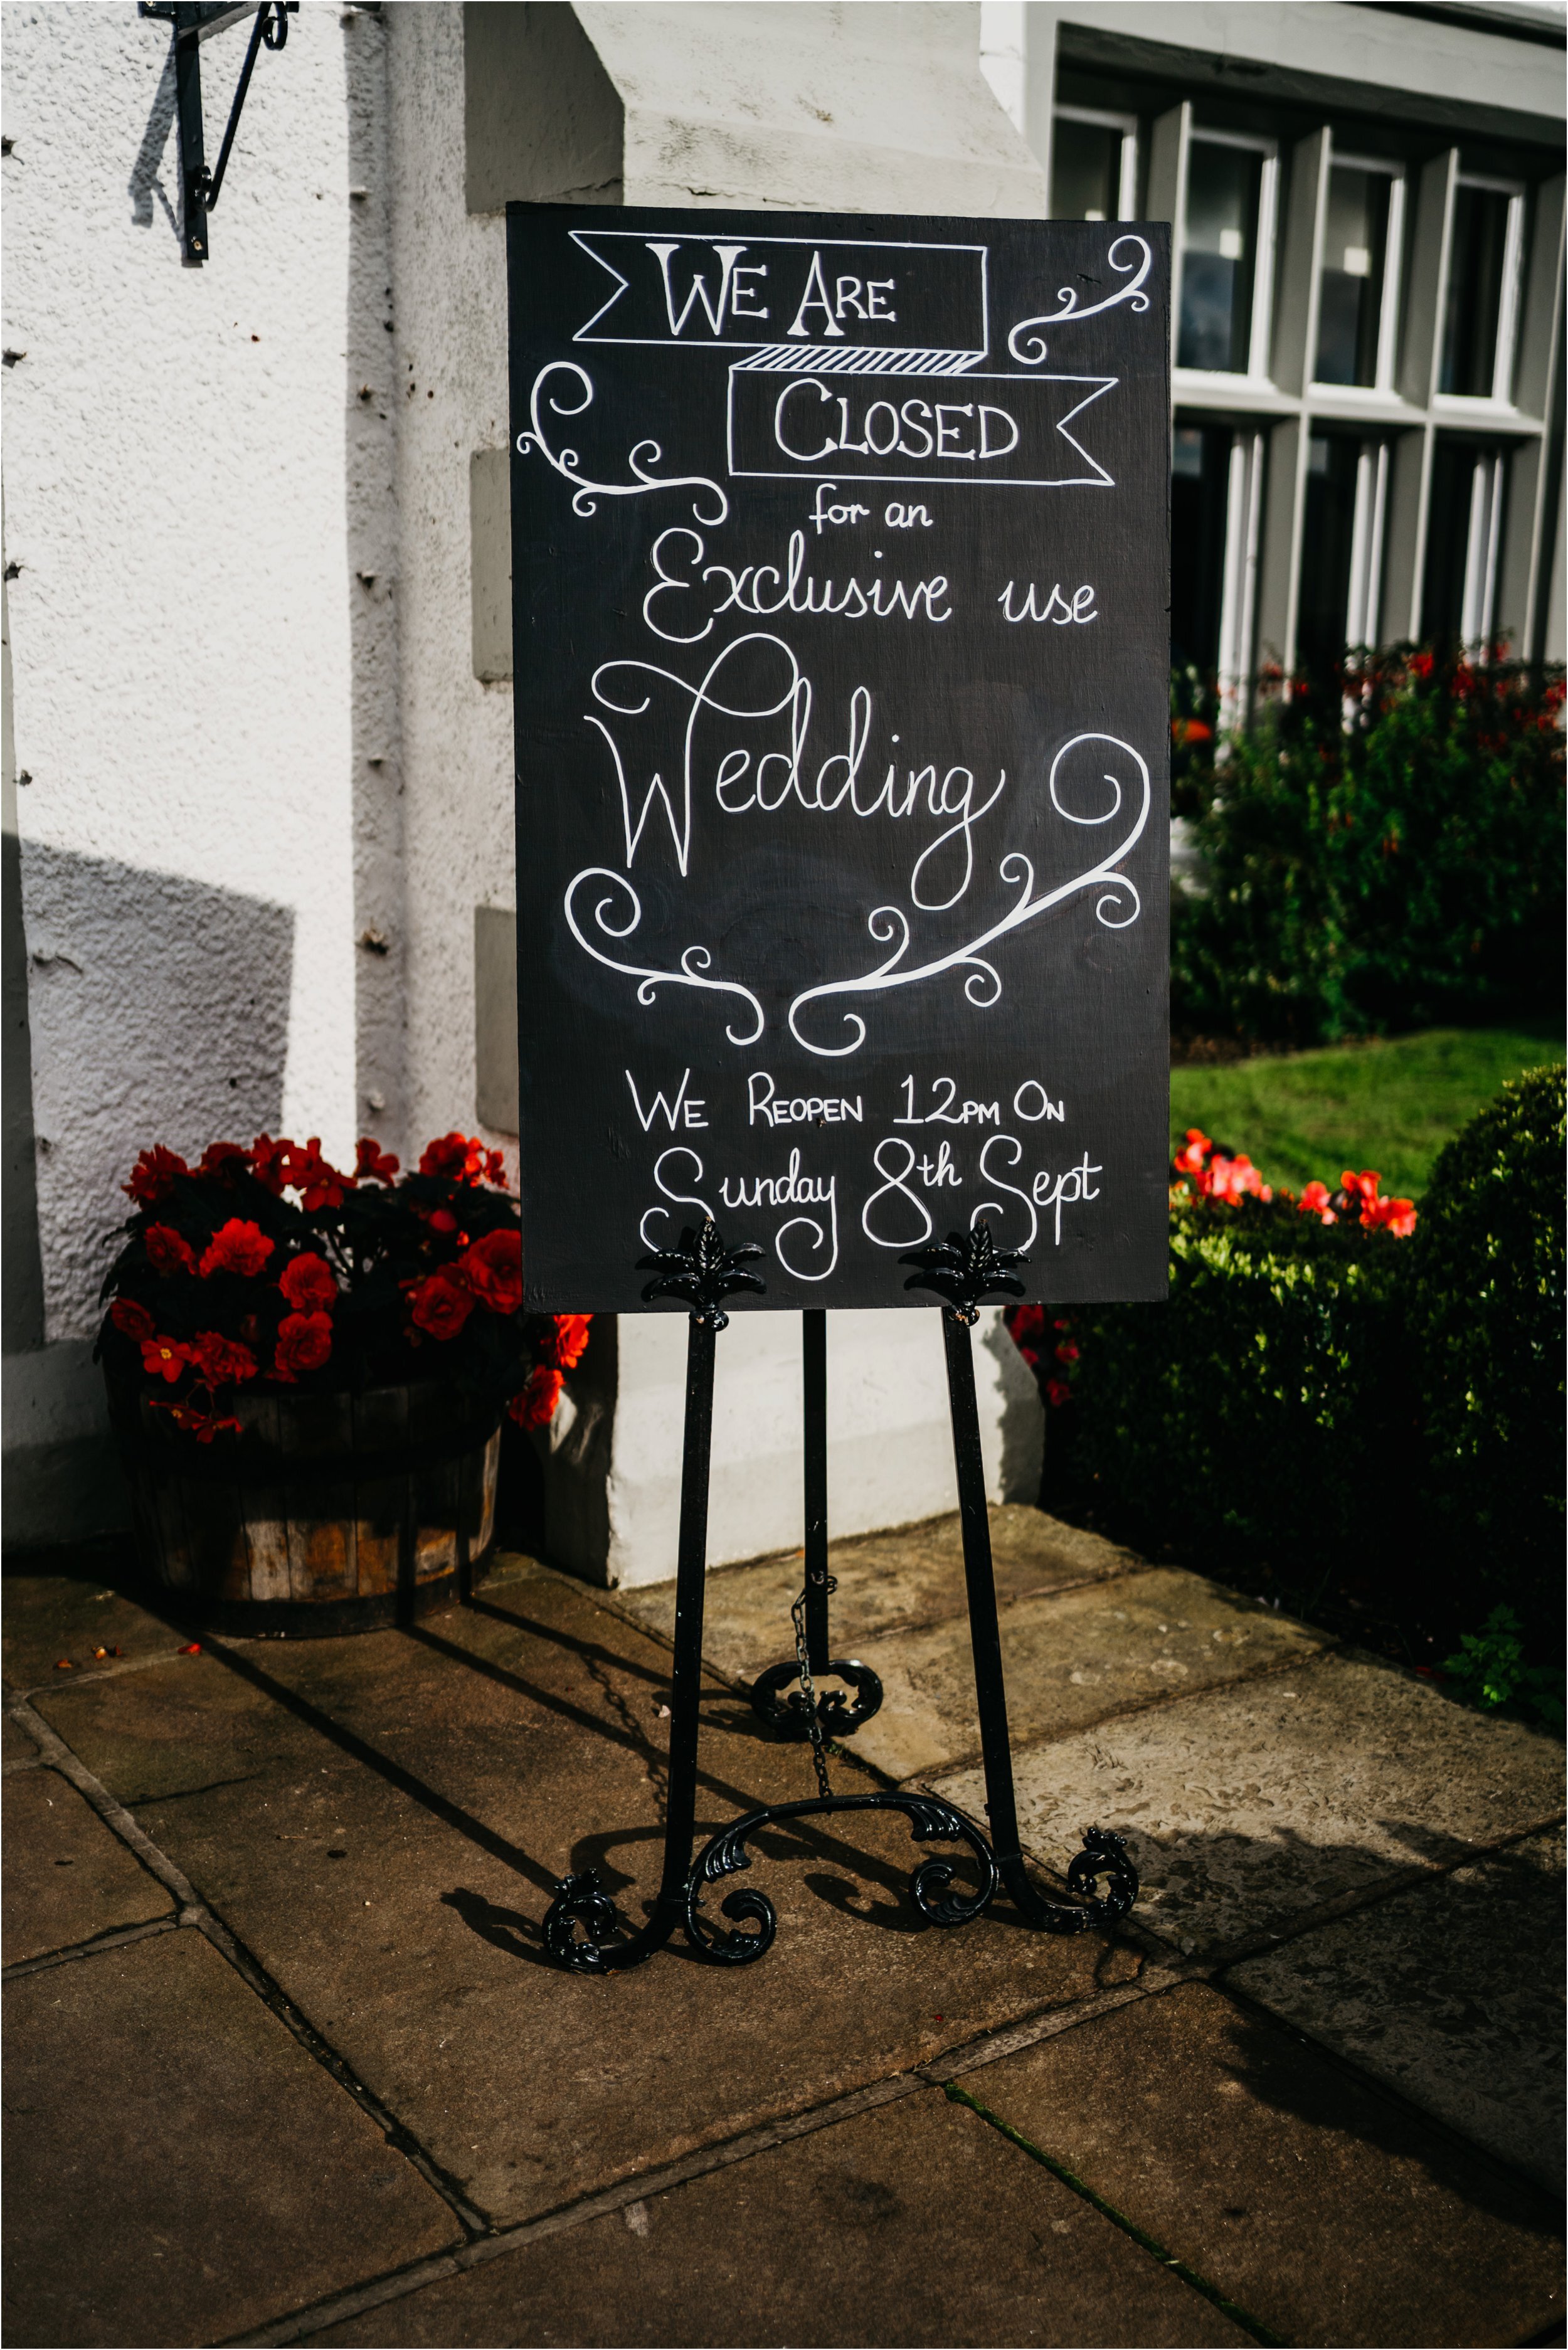 WE ARE
CLOSED
for an
Exclusive use
Wedding
WE REOPEN 12PM ON
Sunday 8th Sept